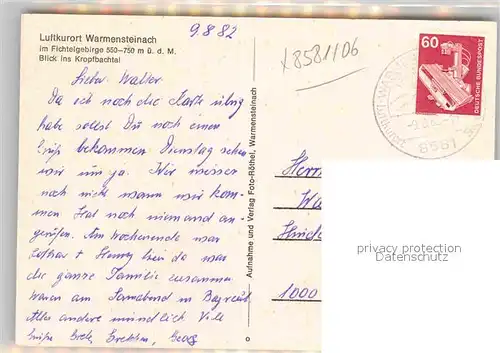 Luftkurort Warmensteinach
im Fichtelgebirge 550–750 m ü. d. M.
Blick ins Kropfbachtal
9.8.82
x8581106
60
DEUTSCHE BUNDESPOST
8581
Lieber Walter
Da ich noch die Karte übrig
habe sollst Du noch einen
Gruß bekommen. Dienstag sehen
wir uns ja. Wir wissen
noch nicht wann wir kom-
men. Hat noch niemand an-
gerufen. Am Wochenende war
Lothar + Henry hier da war
die ganze Familie zusammen
waren am Sonnabend in Bayreuth
Alles andere mündlich Viele
Grüße Georg
Aufnahme und Verlag Foto-Röthel, Warmensteinach
Herrn
Wa
1000
privacy protection
Datenschutz